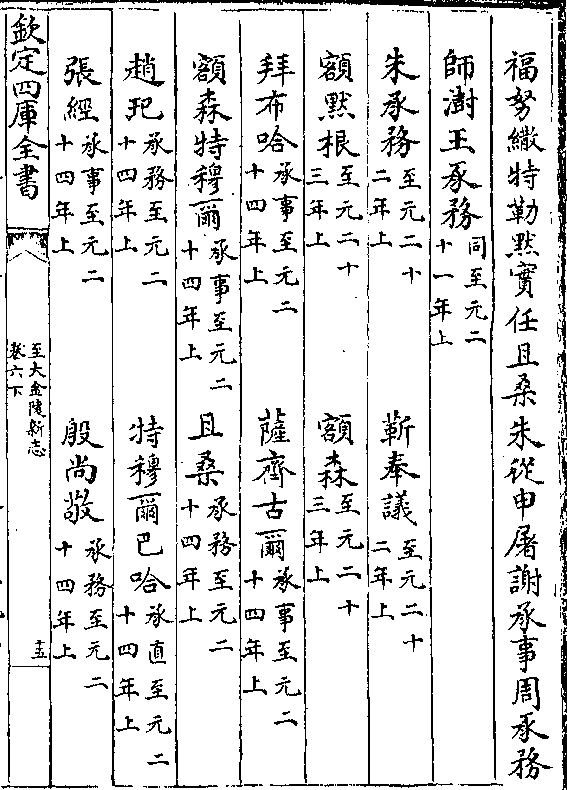 福努繖特勒黙實任且桑朱從申屠謝承事周承務
師澍王承務同至元二十一年上
朱承務至元二十二年上　靳奉議至元二十二年上
額黙根至元二十三年上　額森至元二十三年上
拜布哈承事至元二十四年上　薩齊古爾承事至元二十四年上
額森特穆爾承事至元二十四年上　且桑承務至元二十四年上
趙玘承務至元二十四年上　特穆爾巴哈承直至元二十四年上
張經承事至元二十四年上　殷尚敬承務至元二十四年上
欽定四庫全書　至大金陵新志卷六下　十五